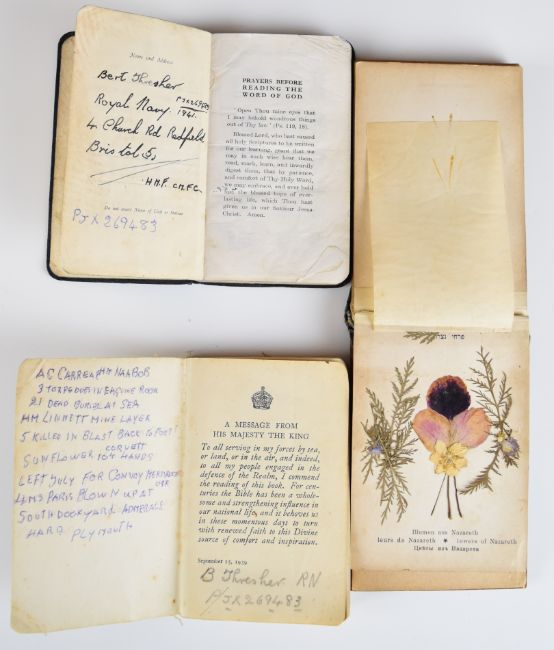 Name and Address
Bert Thresher
Royal Navy PJX269483
1941.
4 Church Rd Redfield
Bristol 5,
H.M.F.
Do not insert Name of Ship or Station
PJX269483
PRAYERS BEFORE
READING THE
WORD OF GOD
"Open Thou mine eyes that
I may behold wondrous things
out of Thy law" (Ps. 119, 18).
Blessed Lord, who hast caused
all holy Scriptures to be written
for our learning, grant that we
may in such wise hear them,
read, mark, learn, and inwardly
digest them, that by patience,
and comfort of Thy Holy Word,
we may embrace, and ever hold
fast the blessed hope of ever-
lasting life, which Thou hast
given us in our Saviour Jesus
Christ. Amen.
פרחי נצרת
Blumen aus Nazareth
leurs de Nazareth ★ lowers of Nazareth
Цвѣты изъ Назарета
NABOB
3 TORPEDOES IN ENGINE ROOM
21 DEAD BURIAL AT SEA
HM LINNETT MINE LAYER
5 KILLED IN BLAST BACK TO PORT
CORVETT
SUNFLOWER 104 HANDS
LEFT JULY FOR CONVOY
HMS PARIS BLOWN UP AT
SOUTH DOCKYARD ADMERALS
HARD PLYMOUTH
A MESSAGE FROM
HIS MAJESTY THE KING
To all serving in my forces by sea,
or land, or in the air, and indeed,
to all my people engaged in the
defence of the Realm, I commend
the reading of this book. For cen-
turies the Bible has been a whole-
some and strengthening influence in
our national life, and it behoves us
in these momentous days to turn
with renewed faith to this Divine
source of comfort and inspiration.
September 15, 1939
B Thresher RN
P/JX269483